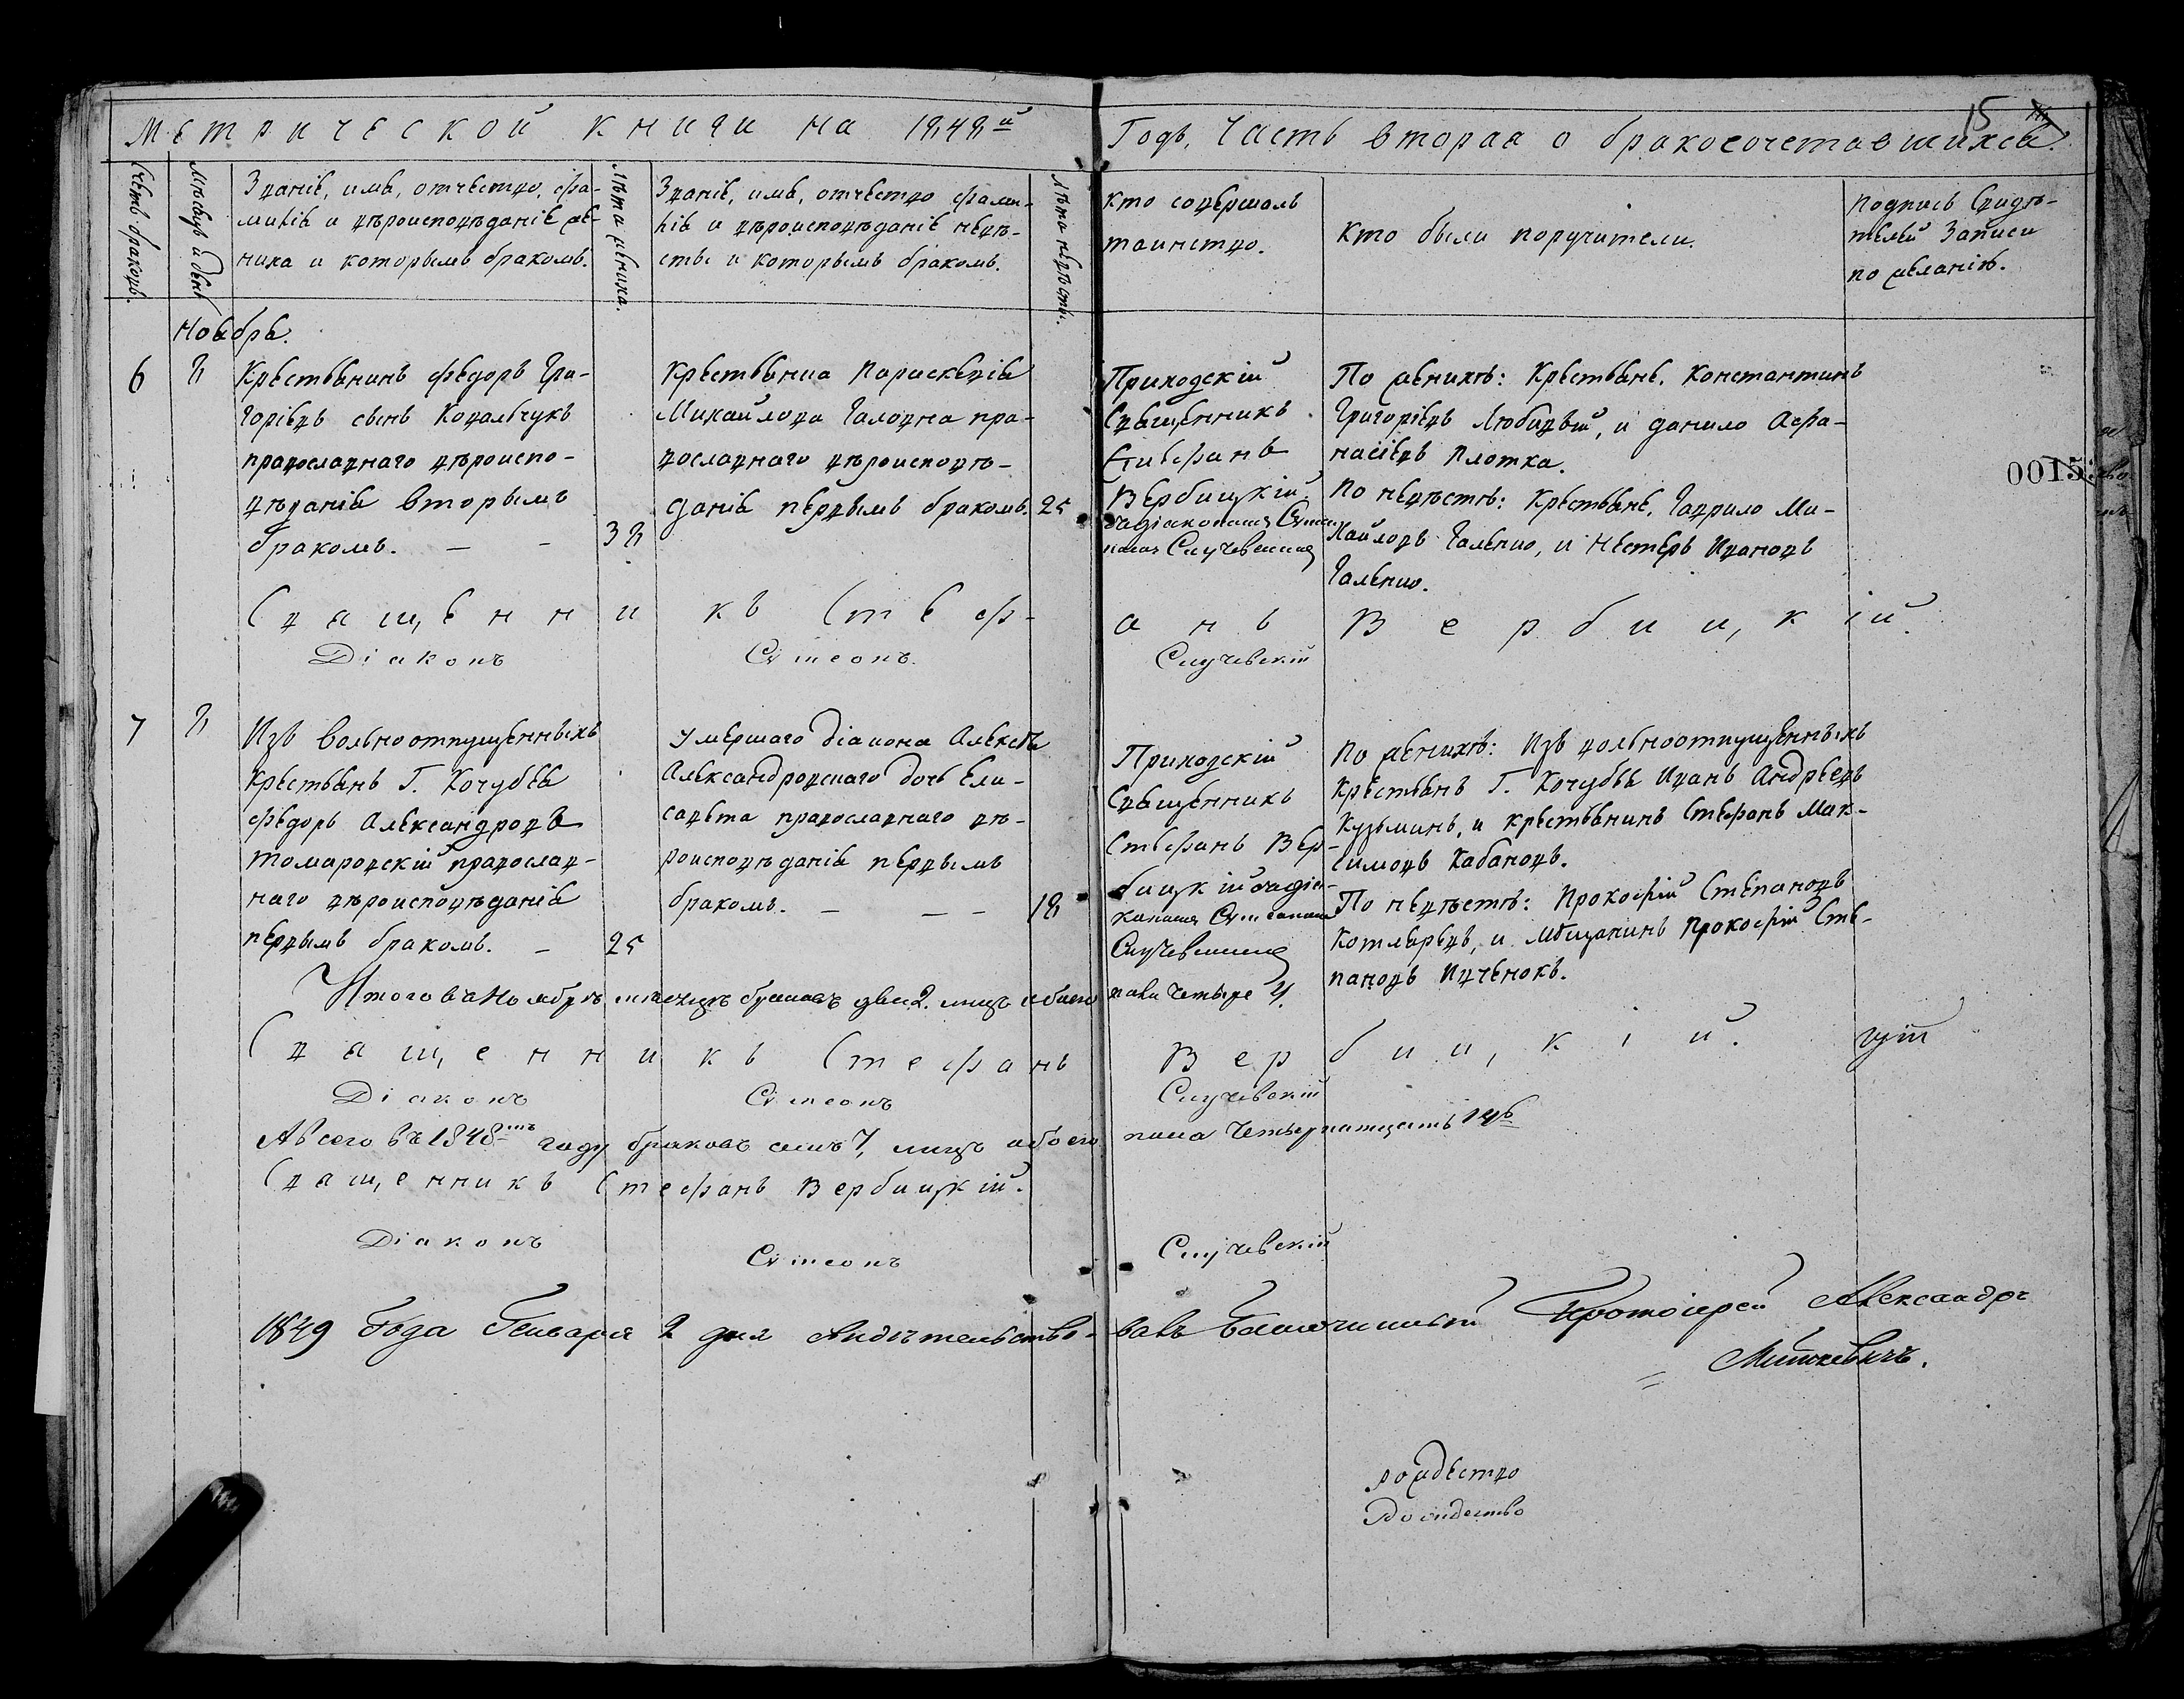 Метрической книги на 1848й
Годъ, Часть вторая о бракосочетавшихся.
15
Счетъ браковъ.
Мѣсяцъ и день
Званіе, имя, отчество, фа-
милія и вѣроисповѣданіе же-
ниха и которымъ бракомъ.
Лѣта жениха.
Званіе, имя, отчество фами-
лія и вѣроисповѣданіе невѣ-
сты и которымъ бракомъ.
Лѣта невѣсты.
кто совершалъ
таинство.
Кто были поручители.
Подпись свидѣ-
телей записи
по желанію.
Ноябрь.
6
8
Крестьянинъ Федоръ Гри-
горіевъ сынъ Ковальчукъ
православнаго вѣроиспо-
вѣданія вторымъ
бракомъ. — —
38
Крестьянка Параскевія
Михайлова Галовна пра-
вославнаго вѣроисповѣ-
данія первымъ бракомъ.
25
Приходскій
Священникъ
Стефанъ
Вербицкій
съ діакономъ Сѵме-
ономъ Случевскимъ
По женихѣ: Крестьяне, Константинъ
Григоріевъ Любивый, и Данило Афа-
насіевъ Плотка.
По невѣстѣ: Крестьяне, Гаврило Ми-
хайловъ Галенко, и Нестеръ Ивановъ
Галенко.
Священникъ Стефанъ Вербицкій.
Діаконъ Сѵмеонъ Случевскій
7
8
Изъ вольноотпущенныхъ
крестьянъ Г. Кочубея
Федоръ Александровъ
Томаровскій православ-
наго вѣроисповѣданія
первымъ бракомъ. —
25
Умершаго діакона Алексѣя
Александровскаго дочь Ели-
савета православнаго вѣ-
роисповѣданія первымъ
бракомъ. — — —
18
Приходскій
Священникъ
Стефанъ Вер-
бицкій съ діа-
кономъ Сѵмеономъ
Случевскимъ
По женихѣ: Изъ вольноотпущенныхъ
крестьянъ Г. Кочубея Иванъ Андреевъ
Кузьминъ, и крестьянинъ Стефанъ Мак-
симовъ Кабановъ.
По невѣстѣ: Прокофій Степановъ
Котляревъ, и мѣщанинъ Прокофій Сте-
пановъ Ивченокъ.
Итого въ Ноябрѣ мѣсяцѣ браковъ два 2. лицъ обоего пола четыре 4.
Священникъ Стефанъ Вербицкій.
Діаконъ Сѵмеонъ Случевскій
А всего въ 1848мъ году браковъ семь 7, лицъ обоего пола четырнатцать 14ь
Священникъ Стефанъ Вербицкій.
Діаконъ Сѵмеонъ Случевскій
1849 Года Генваря 2 дня свидѣтельство-валъ Благочинный Протоіерей Александръ
Миткевичъ.
рождество
Рождество
0015